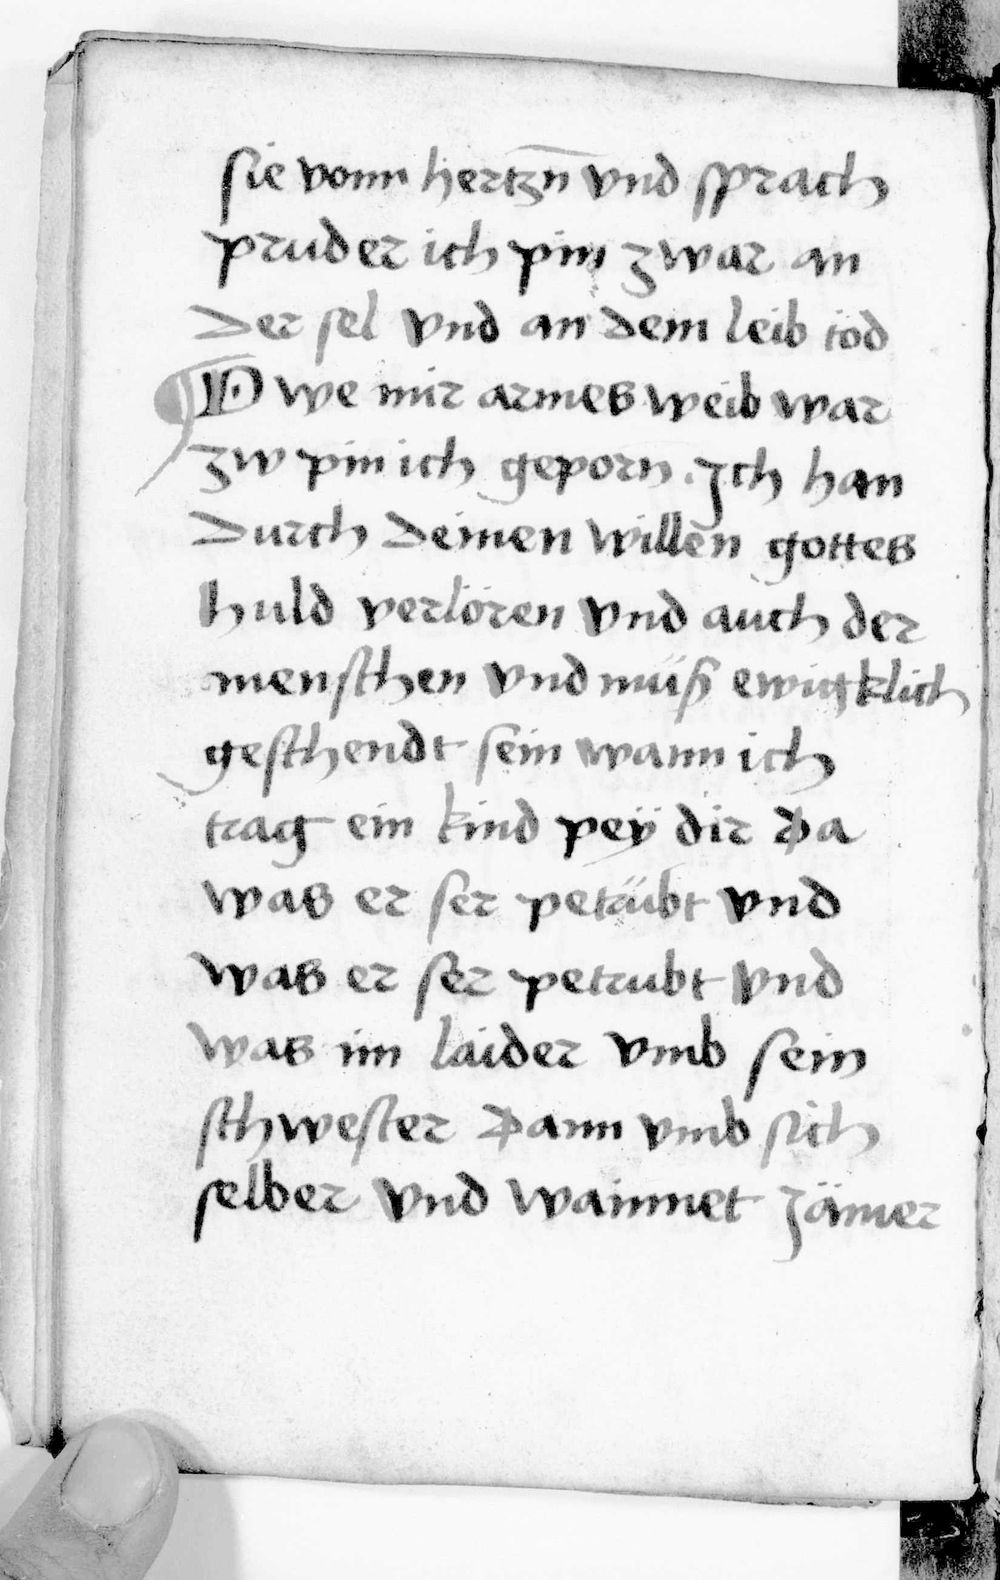 sie vonn hertzn̄ vnd sprach
pruder ich pin zwar an
der sel vnd an dem leib tod
¶ O we mir armes weib war
zw pin ich geporn . Ich han
durch deinen willen gottes
huld verloren vnd auch der
menschen vnd müß ewigklich
geschendt sein wann ich
trag ein kind peÿ dir Da
was er ser petrübt vnd
was er ser petrubt vnd
was im laider vmb sein
schwester Dann vmb sich
selber vnd wainnet Jämer